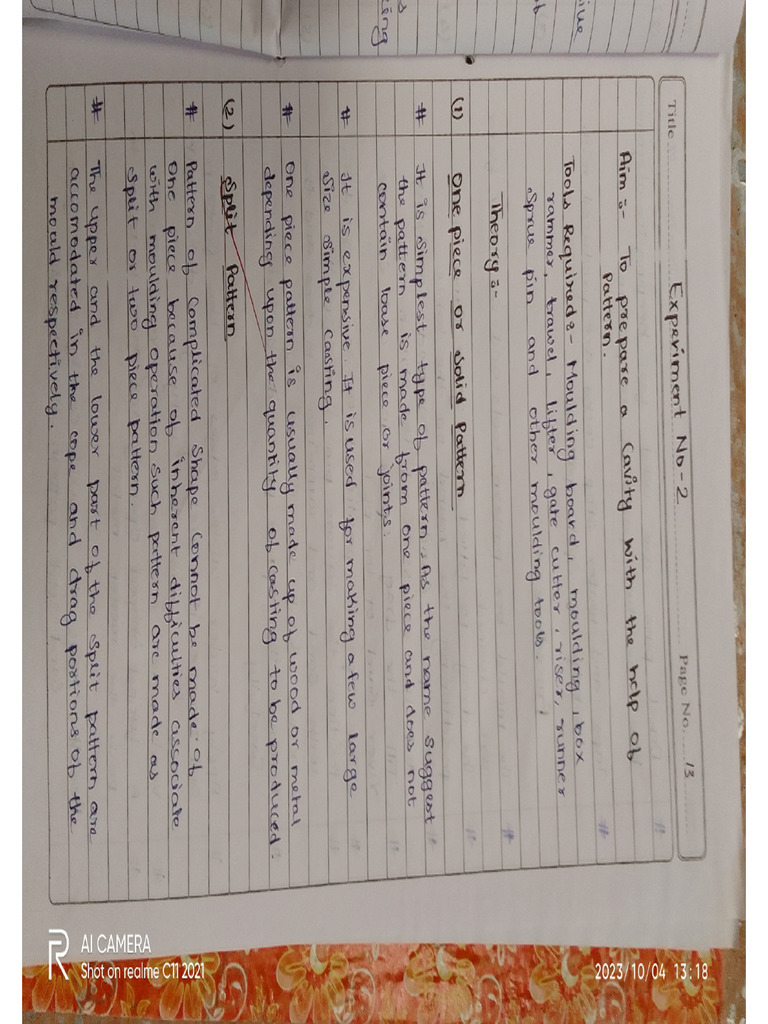 Title
Experiment No-2
Page No. 13
Aim :- To prepare a Cavity with the help of
Pattern.
Tools Required :- Moulding board, moulding, box
rammer, trawel, lifter, gate cutter, riser, runner
Sprue pin and other moulding tools.
Theory :-
(1) One piece or Solid Pattern
# It is simplest type of pattern. As the name suggest
the pattern is made from one piece and does not
contain loase piece or joints.
# It is expensive It is used for making a few large
size simple casting.
# One piece pattern is usually made up of wood or metal
depending upon the quantity of casting to be produced.
(2) Split Pattern
# Pattern of Complicated Shape Connot be made of
One piece because of inherent difficulties associate
with moulding operation such pattern are made as
split or two piece pattern.
# The upper and the lower part of the Split pattern are
accomodated in the cope and drag portions of the
mould respectively.
AI CAMERA
Shot on realme C11 2021
2023/10/04 13:18